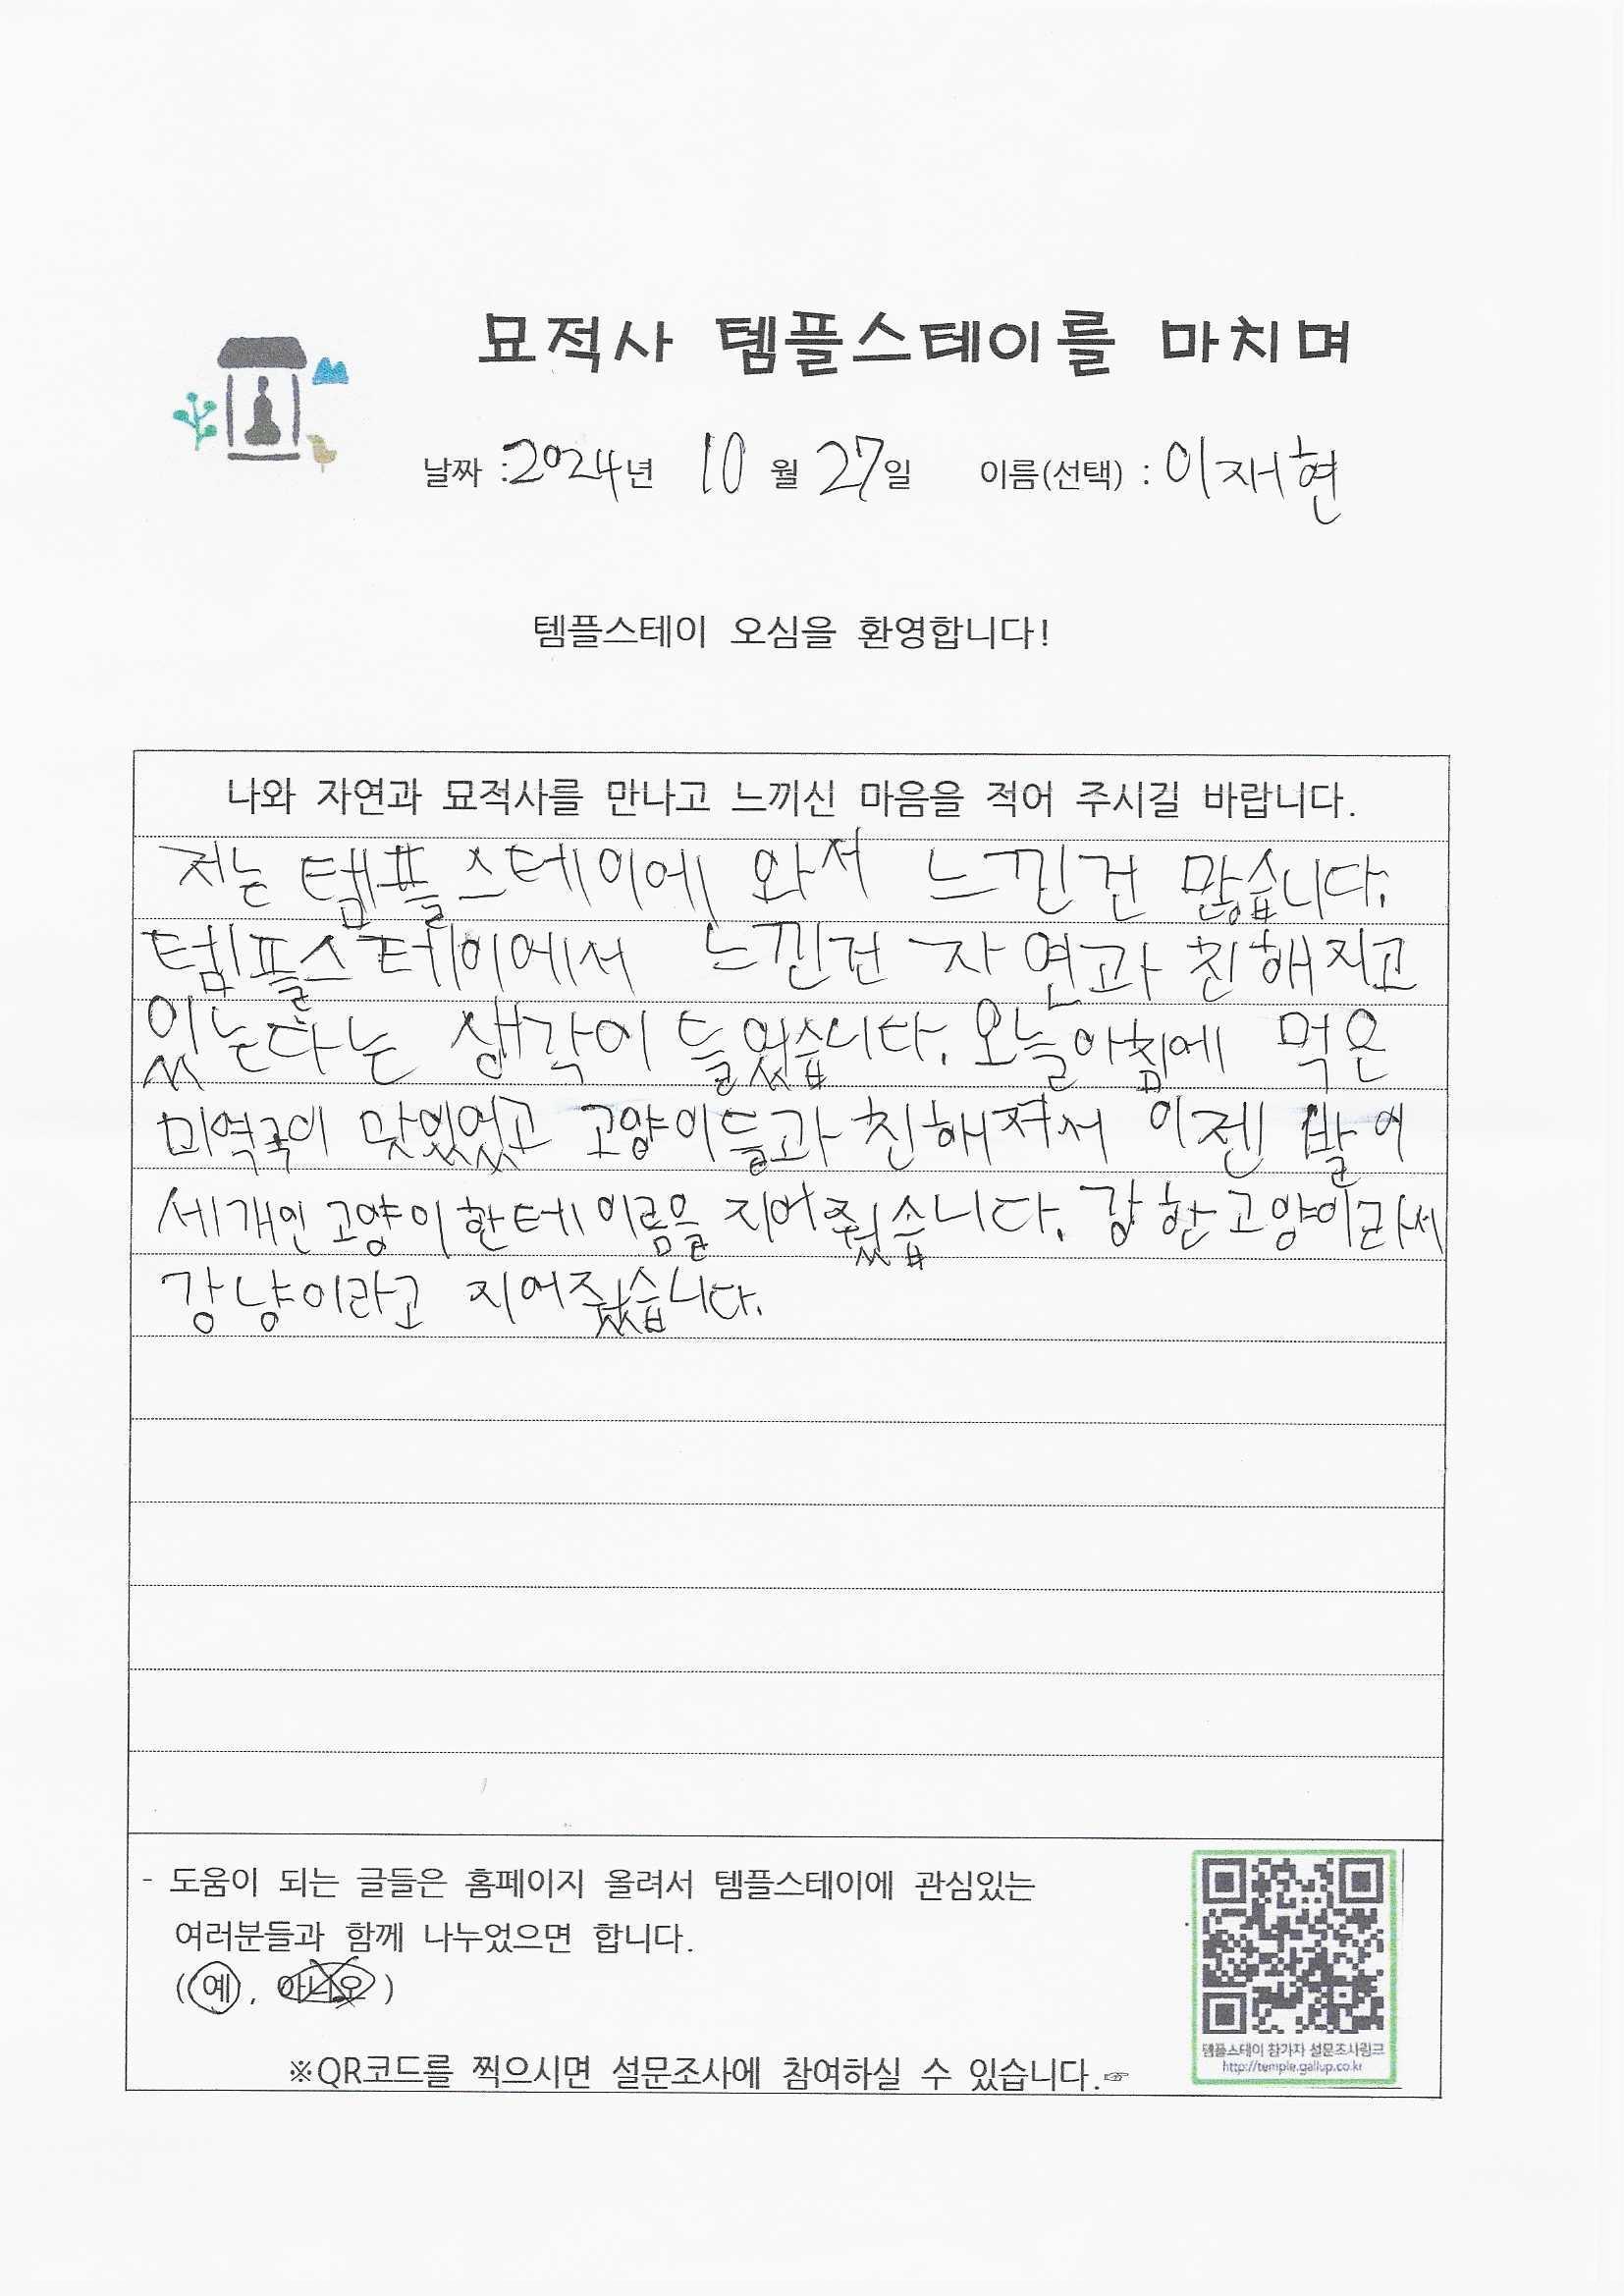 묘적사 템플스테이를 마치며
날짜 : 2024년 10월 27일 이름(선택) : 이재현
템플스테이 오심을 환영합니다!
나와 자연과 묘적사를 만나고 느끼신 마음을 적어 주시길 바랍니다.
저는 템플스테이에 와서 느낀건 많습니다.
템플스테이에서 느낀건 자연과 친해지고
있는다는 생각이 들었습니다. 오늘아침에 먹은
미역국이 맛있었고 고양이들과 친해져서 이젠 발이
세개인 고양이한테 이름을 지어줬습니다. 강한고양이라서
강냥이라고 지어줬습니다.
- 도움이 되는 글들은 홈페이지 올려서 템플스테이에 관심있는
여러분들과 함께 나누었으면 합니다.
(예, 아니오)
템플스테이 참가자 설문조사링크
http://temple.gallup.co.kr
※QR코드를 찍으시면 설문조사에 참여하실 수 있습니다.☞